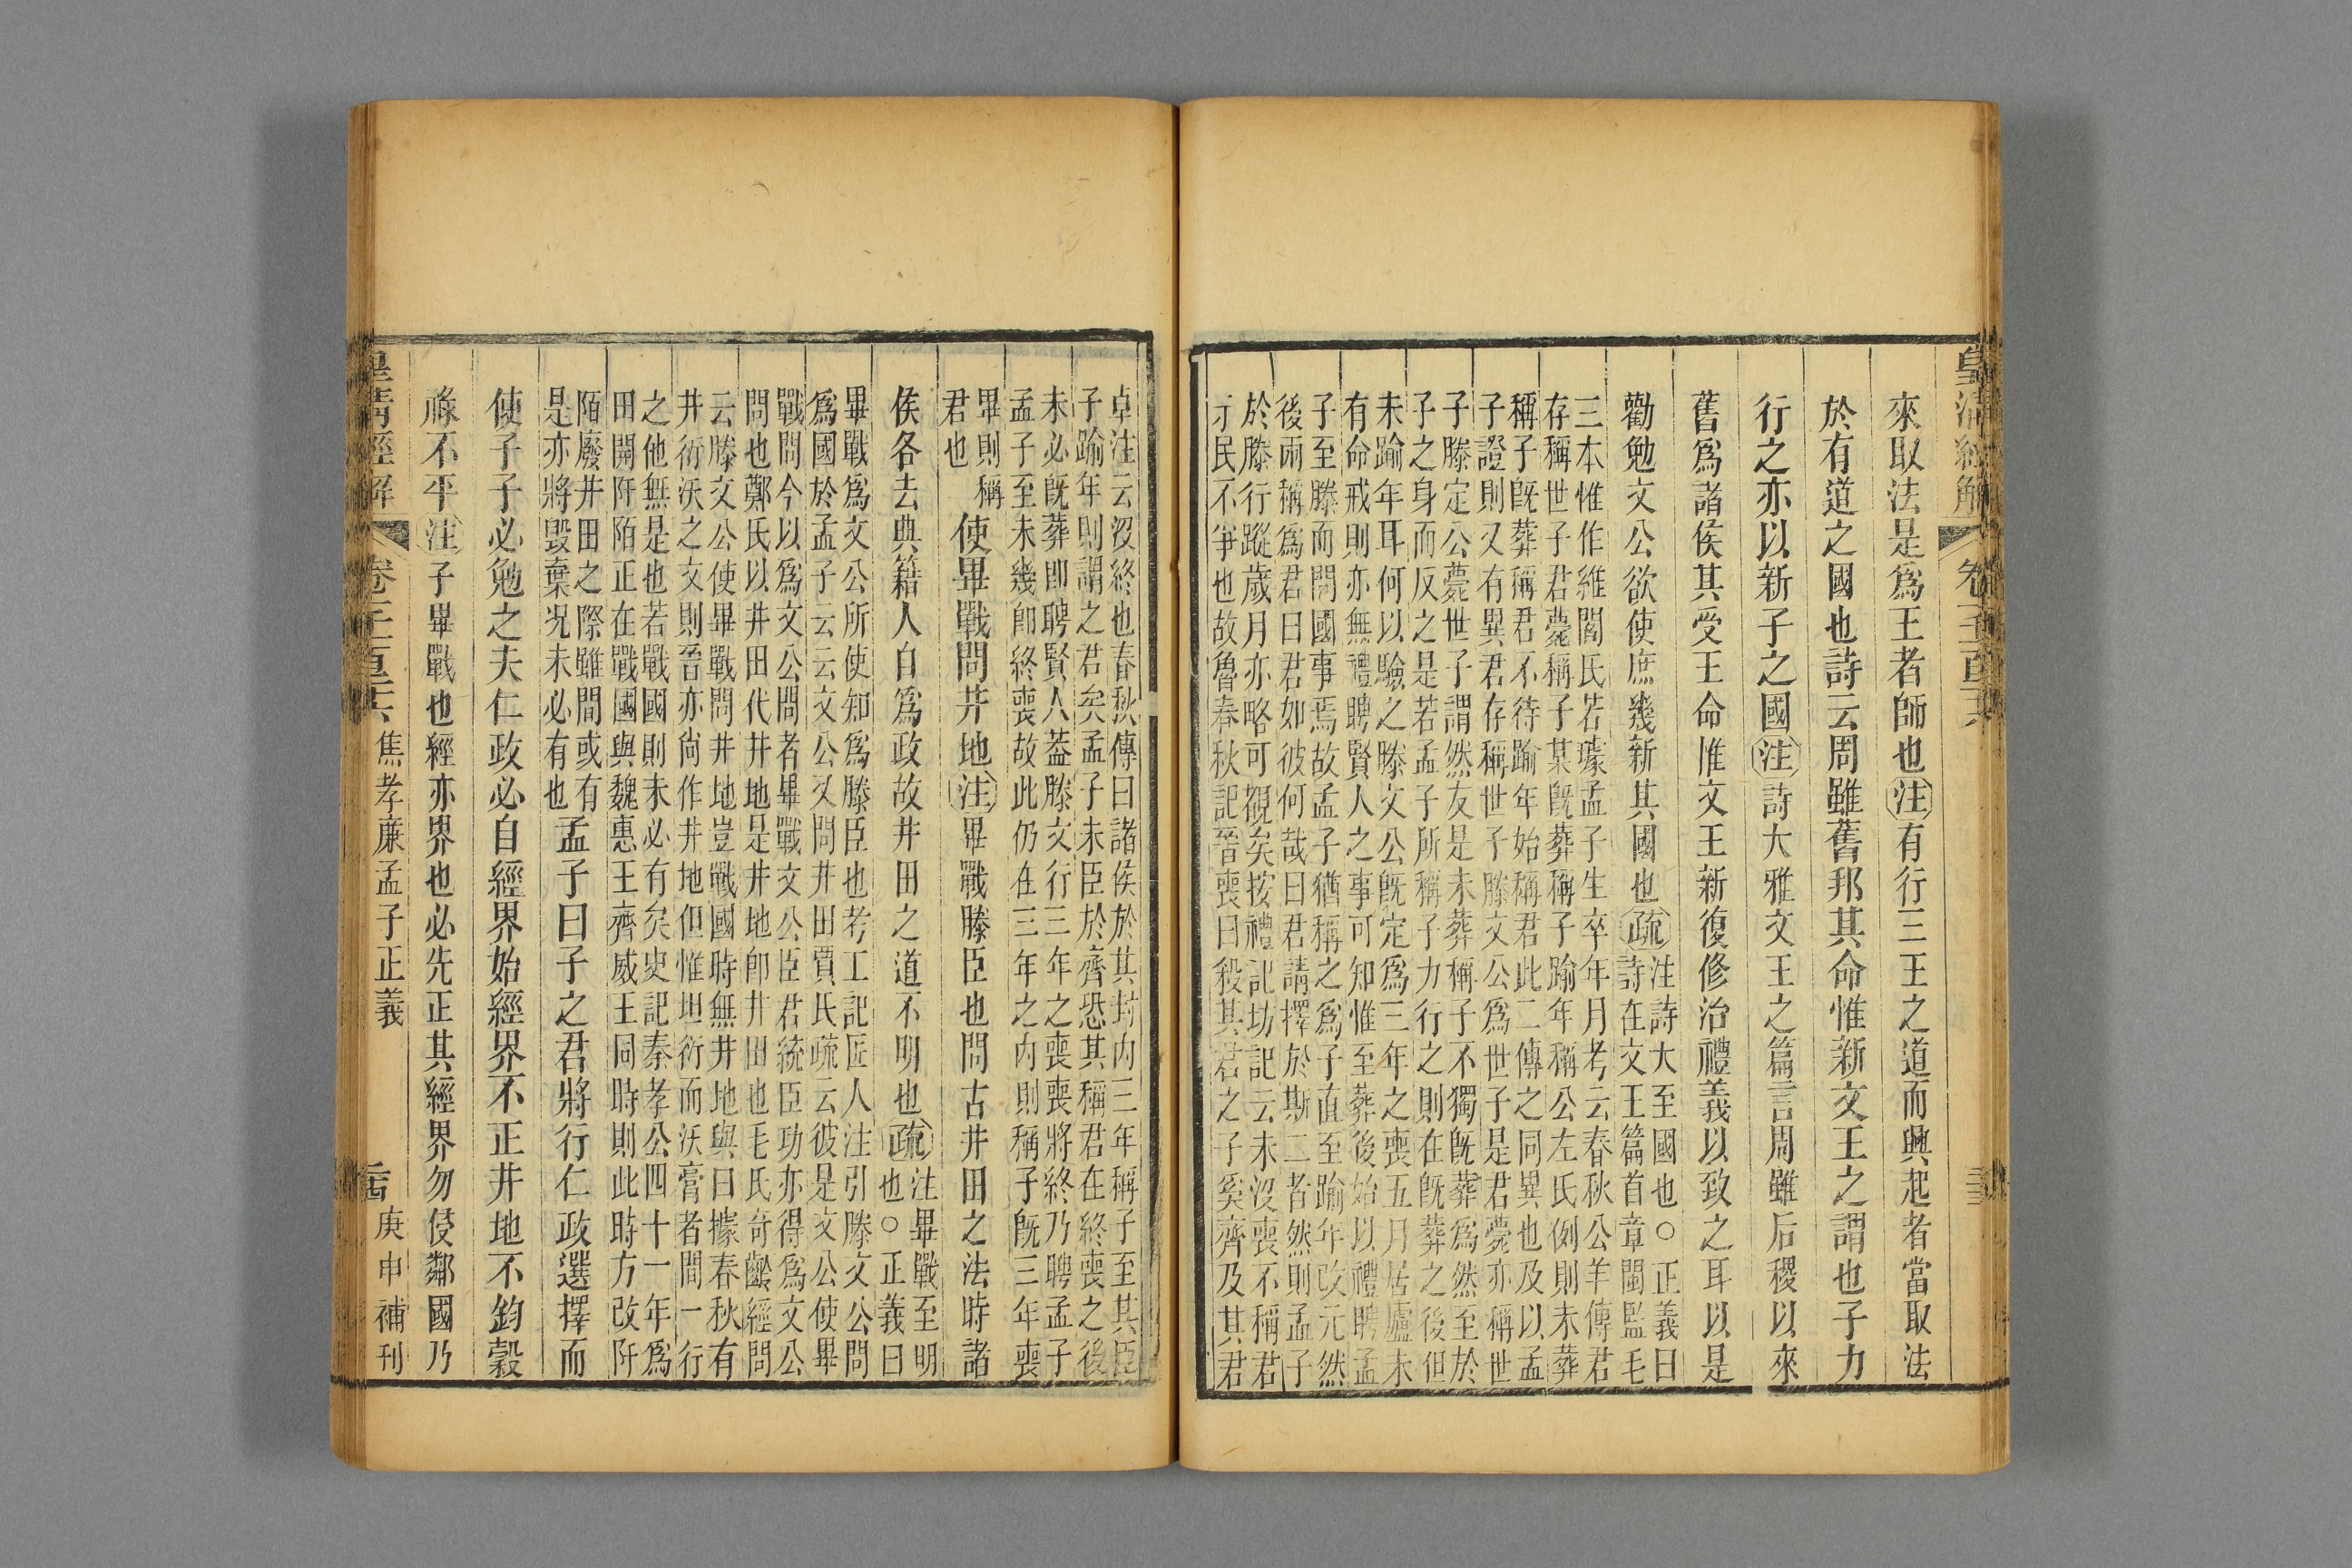 皇清經解
來取法是爲王者師也注有行三王之道而興起者當取法
於有道之國也詩云周雖舊邦其命惟新文王之謂也子力
行之亦以新子之國注詩大雅文王之篇言周雖后稷以來
舊爲諸侯其受王命惟文王新復修治禮義以致之耳以是
勸勉文公欲使庶幾新其國也疏
注詩大至國也○正義曰
詩在文王篇首章閩監毛
三本惟作維閻氏若璩孟子生卒年月考云春秋公羊傳君
存稱世子君薨稱子某旣葬稱子踰年稱公左氏例則未葬
稱子旣葬稱君不待踰年始稱君此二傳之同異也及以孟
子證則又有異君存稱世子滕文公爲世子是君薨亦稱世
子滕定公薨世子謂然友是未葬稱子不獨旣葬爲然至於
子之身而反之是若孟子所稱子力行之則在旣葬之後但
未踰年耳何以驗之滕文公旣定爲三年之喪五月居廬未
有命戒則亦無禮聘賢人之事可知惟至葬後始以禮聘孟
子至滕而問國事焉故孟子猶稱之爲子直至踰年改元然
後兩稱爲君曰君如彼何哉曰君請擇於斯二者然則孟子
於滕行蹤歲月亦略可覩矣按禮記坊記云未沒喪不稱君
示民不爭也故魯春秋記晉喪曰殺其君之子奚齊及其君
卓注云沒終也春秋傳曰諸侯於其封內三年稱子至其臣
子踰年則謂之君矣孟子未臣於齊恐其稱君在終喪之後
未必旣葬卽聘賢人葢滕文行三年之喪喪將終乃聘孟子
孟子至未幾卽終喪故此仍在三年之內則稱子旣三年喪
畢則稱
君也
使畢戰問井地注畢戰滕臣也問古井田之法時諸
侯各去典籍人自爲政故井田之道不明也疏
注畢戰至明
也○正義曰
畢戰爲文公所使知爲滕臣也考工記匠人注引滕文公問
爲國於孟子云云文公又問井田賈氏疏云彼是文公使畢
戰問今以爲文公問者畢戰文公臣君統臣功亦得爲文公
問也鄭氏以井田代井地是井地卽井田也毛氏奇齡經問
云滕文公使畢戰問井地豈戰國時無井地與曰據春秋有
井衍沃之文則晉亦尙作井地但惟坦衍而沃膏者間一行
之他無是也若戰國則未必有矣史記秦孝公四十一年爲
田開阡陌正在戰國與魏惠王齊威王同時則此時方改阡
陌廢井田之際雖間或有
是亦將毀棄況未必有也
孟子曰子之君將行仁政選擇而
使子子必勉之夫仁政必自經界始經界不正井地不鈞穀
祿不平注子畢戰也經亦界也必先正其經界勿侵鄰國乃
皇清經解
焦孝廉孟子正義
庚申補刊